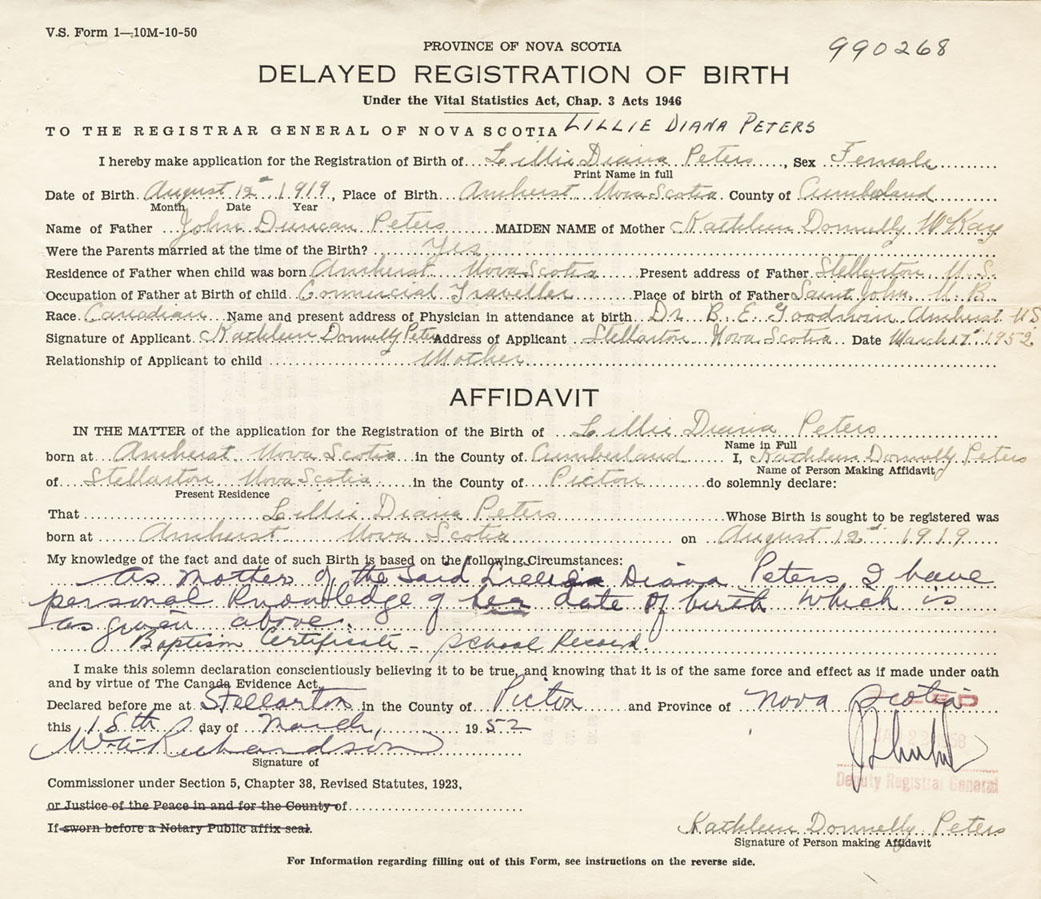 V.S. Form 1—10M-10-50
990268
PROVINCE OF NOVA SCOTIA
DELAYED REGISTRATION OF BIRTH
Under the Vital Statistics Act, Chap. 3 Acts 1946
TO THE REGISTRAR GENERAL OF NOVA SCOTIA LILLIE DIANA PETERS
I hereby make application for the Registration of Birth of Lillie Diana Peters, Sex Female
Print Name in full
Date of Birth August 12th 1919, Place of Birth Amherst Nova Scotia County of Cumberland
Month Date Year
Name of Father John Duncan Peters MAIDEN NAME of Mother Kathleen Donnelly McKay
Were the Parents married at the time of the Birth? Yes
Residence of Father when child was born Amherst Nova Scotia Present address of Father Stellarton N.S.
Occupation of Father at Birth of child Commercial Traveller Place of birth of Father Saint John N.B.
Race Canadian Name and present address of Physician in attendance at birth Dr. B. E. Goodwin Amherst NS
Signature of Applicant Kathleen Donnelly Peters Address of Applicant Stellarton Nova Scotia Date March 1952
Relationship of Applicant to child Mother
AFFIDAVIT
IN THE MATTER of the application for the Registration of the Birth of Lillie Diana Peters
Name in Full
born at Amherst Nova Scotia in the County of Cumberland I, Kathleen Donnelly Peters
Name of Person Making Affidavit
of Stellarton Nova Scotia in the County of Picton do solemnly declare:
Present Residence
That Lillie Diana Peters Whose Birth is sought to be registered was
born at Amherst Nova Scotia on August 12th 1919
My knowledge of the fact and date of such Birth is based on the following Circumstances:
As mother of the said Diana Peters, I have
personal knowledge of her date of birth which is
as given above.
Baptism Certificate - School Record.
I make this solemn declaration conscientiously believing it to be true, and knowing that it is of the same force and effect as if made under oath
and by virtue of The Canada Evidence Act.
Declared before me at Stellarton in the County of Picton and Province of Nova Scotia
this 18th day of March, 1952
Richardson
Signature of
Deputy Registrar General
Commissioner under Section 5, Chapter 38, Revised Statutes, 1923,
or Justice of the Peace in and for the County of
If sworn before a Notary Public affix seal.
Kathleen Donnelly Peters
Signature of Person making Affidavit
For Information regarding filling out of this Form, see instructions on the reverse side.